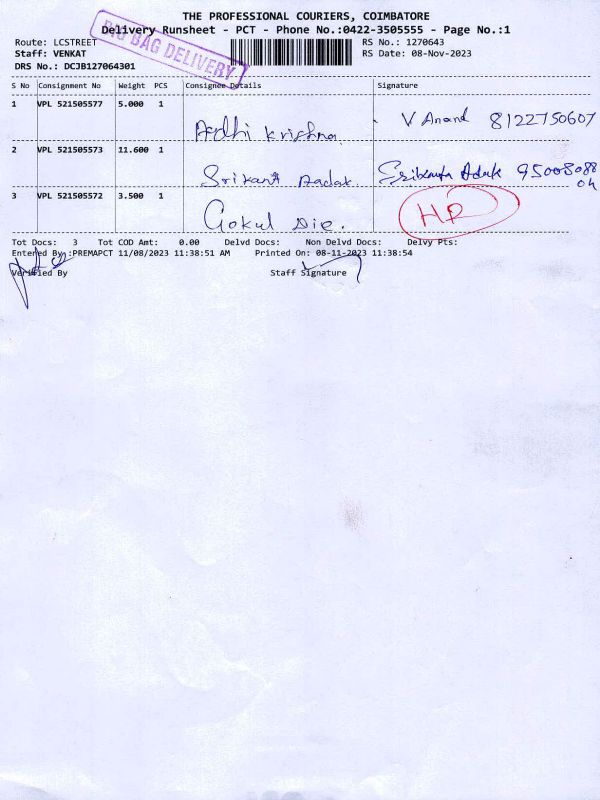 THE PROFESSIONAL COURIERS, COIMBATORE
Delivery Runsheet - PCT - Phone No.:0422-3505555 - Page No.:1
BIG BAG DELIVERY
Route: LCSTREET RS No.: 1270643
Staff: VENKAT RS Date: 08-Nov-2023
DRS No.: DCJB127064301
S No Consignment No Weight PCS Consignee Details Signature
1 VPL 521505577 5.000 1
Aadhi Krishna V Anand 8122750607
2 VPL 521505573 11.600 1
Srikant Aadak Srikanta Adak 95008088
04
3 VPL 521505572 3.500 1
Gokul Die. HR
Tot Docs: 3 Tot COD Amt: 0.00 Delvd Docs: Non Delvd Docs: Delvy Pts:
Entered By :PREMAPCT 11/08/2023 11:38:51 AM Printed On: 08-11-2023 11:38:54
Verified By Staff Signature